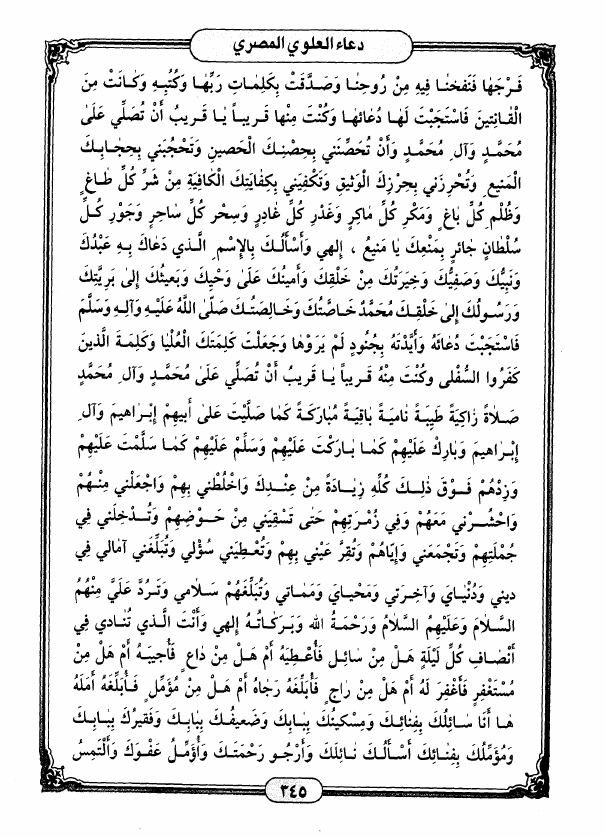 دعاء العلوي المصري
فَرْجَهٰا فَنَفَخنٰا فِيهِ مِنْ رُوحِنٰا وَصَدَّقَتْ بِكَلِمٰاتِ رَبِّهٰا وَكُتُبِهِ وَكٰانَتْ مِنَ
الْقٰانِتِينَ فَاسْتَجَبْتَ لَهٰا دُعٰائَهٰا وَكُنْتَ مِنْهٰا قَرِيباً يٰا قَرِيبُ أَنْ تُصَلِّي عَلىٰ
مُحَمَّدٍ وَآلِ مُحَمَّدٍ وَأَنْ تُحَصِّنَني بِحِصْنِكَ الْحَصينِ وَتَحْجُبَني بِحِجٰابِكَ
الْمَنيعِ وَتُحْرِزَني بِحِرْزِكَ الْوَثيقِ وَتَكْفِيَني بِكِفٰايَتِكَ الْكٰافِيَةِ مِنْ شَرِّ كُلِّ طٰاغٍ
وَظُلْمِ كُلِّ بٰاغٍ وَمَكْرِ كُلِّ مٰاكِرٍ وَغَدْرِ كُلِّ غٰادِرٍ وَسِحْرِ كُلِّ سٰاحِرٍ وَجَوْرِ كُلِّ
سُلْطٰانٍ جٰائِرٍ بِمَنْعِكَ يٰا مَنيعُ ، إِلهي وَأَسْأَلُكَ بِالْإِسْمِ الَّذي دَعٰاكَ بِهِ عَبْدُكَ
وَنَبِيُّكَ وَصَفِيُّكَ وَخِيَرَتُكَ مِنْ خَلْقِكَ وَأَمينُكَ عَلىٰ وَحْيِكَ وَبَعيثُكَ إِلى بَرِيَّتِكَ
وَرَسُولُكَ إِلىٰ خَلْقِكَ مُحَمَّدٌ خٰاصَّتُكَ وَخٰالِصَتُكَ صَلَّى اللَّهُ عَلَيْهِ وَآلِهِ وَسَلَّمَ
فَاسْتَجَبْتَ دُعٰائَهُ وَأَيَّدْتَهُ بِجُنُودٍ لَمْ يَرَوْهٰا وَجَعَلْتَ كَلِمَتَكَ الْعُلْيٰا وَكَلِمَةَ الَّذينَ
كَفَرُوا السُّفْلى وَكُنْتَ مِنْهُ قَريباً يٰا قَريبُ أَنْ تُصَلِّي عَلىٰ مُحَمَّدٍ وَآلِ مُحَمَّدٍ
صَلاٰةً زٰاكِيَةً طَيِّبَةً نٰامِيَةً بٰاقِيَةً مُبٰارَكَةً كَمٰا صَلَّيْتَ عَلىٰ أَبيهِمْ إِبْرٰاهيمَ وَآلِ
إِبْرٰاهيمَ وَبٰارِكْ عَلَيْهِمْ كَمٰا بٰارَكْتَ عَلَيْهِمْ وَسَلِّمْ عَلَيْهِمْ كَمٰا سَلَّمْتَ عَلَيْهِمْ
وَزِدْهُمْ فَوْقَ ذٰلِكَ كُلِّهِ زِيٰادَةً مِنْ عِنْدِكَ وَاخْلُطْني بِهِمْ وَاجْعَلْني مِنْهُمْ
وَاحْشُرْني مَعَهُمْ وَفي زُمْرَتِهِمْ حَتىٰ تَسْقِيَني مِنْ حَوْضِهِمْ وَتُدْخِلَني في
جُمْلَتِهِمْ وَتَجْمَعَني وَإِيّٰاهُمْ وَتُقِرَّ عَيْني بِهِمْ وَتُعْطِيَني سُؤْلي وَتُبَلِّغَني آمٰالي في
ديني وَدُنْيٰايَ وَآخِرَتي وَمَحْيٰايَ وَمَمٰاتي وَتُبَلِّغَهُمْ سَلاٰمي وَتَرُدَّ عَلَيَّ مِنْهُمُ
السَّلاٰمَ وَعَلَيْهِمُ السَّلاٰمُ وَرَحْمَةُ الله وَبَرَكٰاتُهُ إِلهي وَأَنْتَ الَّذي تُنٰادي في
أَنْصٰافِ كُلِّ لَيْلَةٍ هَلْ مِنْ سٰائِلٍ فَأُعْطِيَهُ أَمْ هَلْ مِنْ دٰاعٍ فَأُجيبَهُ أَمْ هَلْ مِنْ
مُسْتَغْفِرٍ فَأَغْفِرَ لَهُ أَمْ هَلْ مِنْ رٰاجٍ فَأُبَلِّغَهُ رَجٰاهُ أَمْ هَلْ مِنْ مُؤَمِّلٍ فَأُبَلِّغَهُ أَمَلَهُ
هٰا أَنَا سٰائِلُكَ بِفِنٰائِكَ وَمِسْكينُكَ بِبٰابِكَ وَضَعيفُكَ بِبٰابِكَ وَفَقيرُكَ بِبٰابِكَ
وَمُؤَمِّلُكَ بِفِنٰائِكَ أَسْأَلُكَ نٰائِلَكَ وَأَرْجُو رَحْمَتَكَ وَأُؤَمِّلُ عَفْوَكَ وَأَلْتَمِسُ
٣٤٥